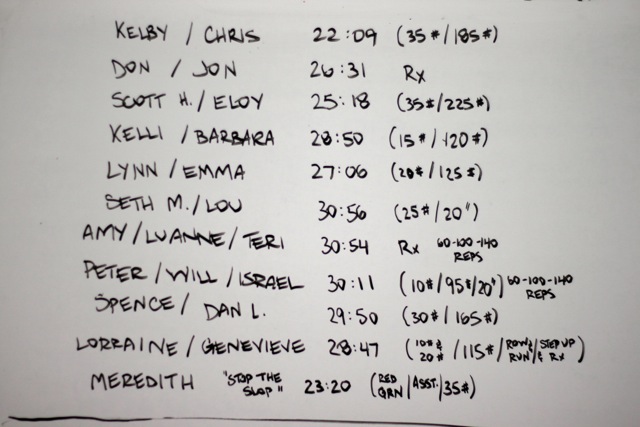 KELBY / CHRIS 22:09 (35# / 185#)
DON / JON 26:31 Rx
SCOTT H. / ELOY 25:18 (35#/225#)
KELLI / BARBARA 28:50 (15# / 120#)
LYNN / EMMA 27:06 (20#/125#)
SETH M. / LOU 30:56 (25#/20")
AMY / LUANNE / TERI 30:54 Rx 60-100-140 REPS
PETER / WILL / ISRAEL 30:11 (10#/95#/20") 60-100-140 REPS
SPENCE / DAN L. 29:50 (30# / 165#)
LORRAINE / GENEVIEVE 28:47 (10# & 20# / 115# / ROW & RUN / STEP UP & Rx)
MEREDITH "STOP THE SLOP" 23:20 (RED GRN / ASST. / 35#)